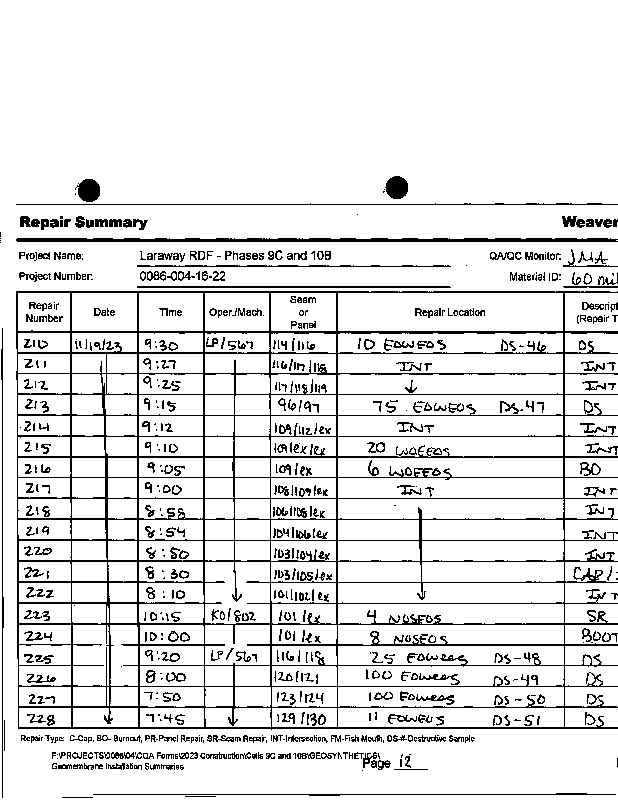 Repair Summary Weaver
Project Name: Laraway RDF - Phases 9C and 10B QA/QC Monitor: JMA
Project Number: 0086-004-16-22 Material ID: 60 mil
Repair Number Date Time Oper./Mach. Seam or Panel Repair Location Descript (Repair T
210 11/19/23 9:30 LP/567 114/116 10 EOWEOS DS-46 DS
211 9:27 116/117/118 INT INT
212 9:25 117/118/119 ↓ INT
213 9:15 96/97 75 EOWEOS DS-47 DS
214 9:12 109/112/ex INT INT
215 9:10 109/ex/ex 20 INT
216 9:05 109/ex 6 WOEEOS BO
217 9:00 108/109/ex INT INT
218 8:58 106/108/ex INT
219 8:54 104/106/ex INT
220 8:50 103/104/ex INT
221 8:30 103/105/ex CAP/
222 8:10 ↓ 101/102/ex ↓ INT
223 10:15 KO/802 101/ex 4 NOSEOS SR
224 10:00 101/ex 8 NOSEOS BOOT
225 9:20 LP/567 116/118 25 DS-48 DS
226 8:00 120/121 100 DS-49 DS
227 7:50 123/124 100 DS-50 DS
228 ↓ 7:45 ↓ 129/130 11 DS-51 DS
Repair Type: C-Cap, BO- Burnout, PR-Panel Repair, SR-Seam Repair, INT-Intersection, FM-Fish Mouth, DS-#-Destructive Sample
F:\PROJECTS\0086\04\CQA Forms\2023 Construction\Cells 9C and 10B\GEOSYNTHETICS\
Geomembrane Installation Summaries Page 12